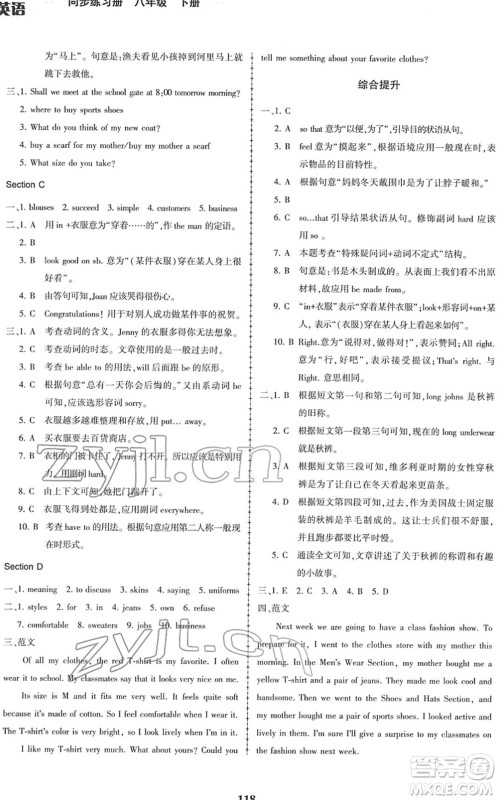 英语
同步练习册 八年级 下册
为“马上”。句意是:渔夫看见小孩掉到河里马上
跳下去救他。
三、1. Shall we meet at the school gate at 8:00 tomorrow morning?
2. where to buy sports shoes
3. What do you think of my new coat?
4. buy a scarf for my mother/buy my mother a scarf
5. What size do you take?
Section C
一、1. blouses 2. succeed 3. simple 4. customers 5. business
二、1. A 用 in +衣服意为“穿着……的”,作 the man 的定语。
2. B
3. B look good on sb. 意为“(某件衣服)穿在某人身上很
好看”。
4. B 由答句可知,Joan 应该哭得很伤心。
5. C Congratulations! 用于对别人成功做某件事的祝贺。
三、1. A 考查动词的含义。Jenny 的衣服多得你无法想象。
2. B 考查动词的时态。文章使用的是一般过去时。
3. C will 后面应用动词的原形。
4. B 根据句意“总有一天你会后悔的……”可知,
应该选形容词 sorry。
5. C 衣服越多越难整理和存放,用 but。
6. A 买衣服要去百货商店。
7. B 衣柜的门被卡住了,Jenny 打不开。所以她只好更加用
力。用副词 hard。
8. C 由上下文可知,她把门踹开了。
9. C 衣服飞得到处都是,应用副词 everywhere。
10. B 考查 have to 的用法。根据句意应用第二人称一般现
在时形式。
Section D
一、1. meaning 2. to discuss 3. skin 4. saying 5. uniforms
二、1. styles 2. for 3. track 4. on 5. also 6. refuse
7. comfortable 8. sweaters 9. jobs 10. business
三、范文
Of all my clothes, the red T-shirt is my favorite. It was a
gift from my friend. My classmates say that it looks very nice on me.
Its size is M and it fits me very well. It feels quite soft
because it's made of cotton. So I feel comfortable when I wear it.
The T-shirt's color is very bright. It can also cheer me up.
I like my T-shirt very much. What about yours? Could you
tell me something about your favorite clothes?
综合提升
一、1. C
2. A so that 意为“以便,为了”,引导目的状语从句。
3. B feel 意为“摸起来”,根据语境应用一般现在时,表
示物品的目前特性。
4. A 根据句意“妈妈冬天戴围巾是为了让脖子暖和。”
5. B
6. C so…that 引导结果状语从句。修饰副词 hard 应该
用 so 。
7. A 本题考查“特殊疑问词+动词不定式”结构。
8. B 句意是:书是木头制成的。从书中看不出原
材料,故应用 be made from。
9. C “in+衣服”表示“穿着某件衣服”;look+形容词+on+某
人,表示“(某件衣服)穿在某人身上看起来很……”
10. B Right.意为“说得对,做得对!”,表示赞同;All right.
意为“行,好吧”,表示接受提议;That's right. 与
Right. 意思相同。
二、1. A 根据短文第一句和第二句可知,long johns 是长秋裤
的旧称。
2. B 根据短文第一段第三句可知,很久以前人们睡觉时
就是穿秋裤。
3. A 根据短文第三段可知,冬季里爱美时髦的女性穿秋
裤是为了让自己穿起来更苗条。
4. D 根据短文第四段可知,过去,美国战士固定服
装的秋裤是羊毛制成的。这让士兵们很不舒服,
并且跑步时穿着非常热。
5. C 通读全文可知,文章讲述了关于秋裤的称谓和有趣
的小故事。
三、1. E 2. C 3. B 4. D 5. A
四、范文
Next week we are going to have a class fashion show. To
prepare for it, I went to the clothes store with my mother last
weekend. In the Men's Wear Section, my mother bought me a
yellow T-shirt and a pair of jeans. They made me look cool and
handsome. Then we continued to go to the Shoes and Hats Section,
and my mother bought me a pair of sports shoes. I looked active
and lively in them. I want to give a surprise to my classmates on
the fashion show next week.
118
zyjl.cn
zyjl.cn